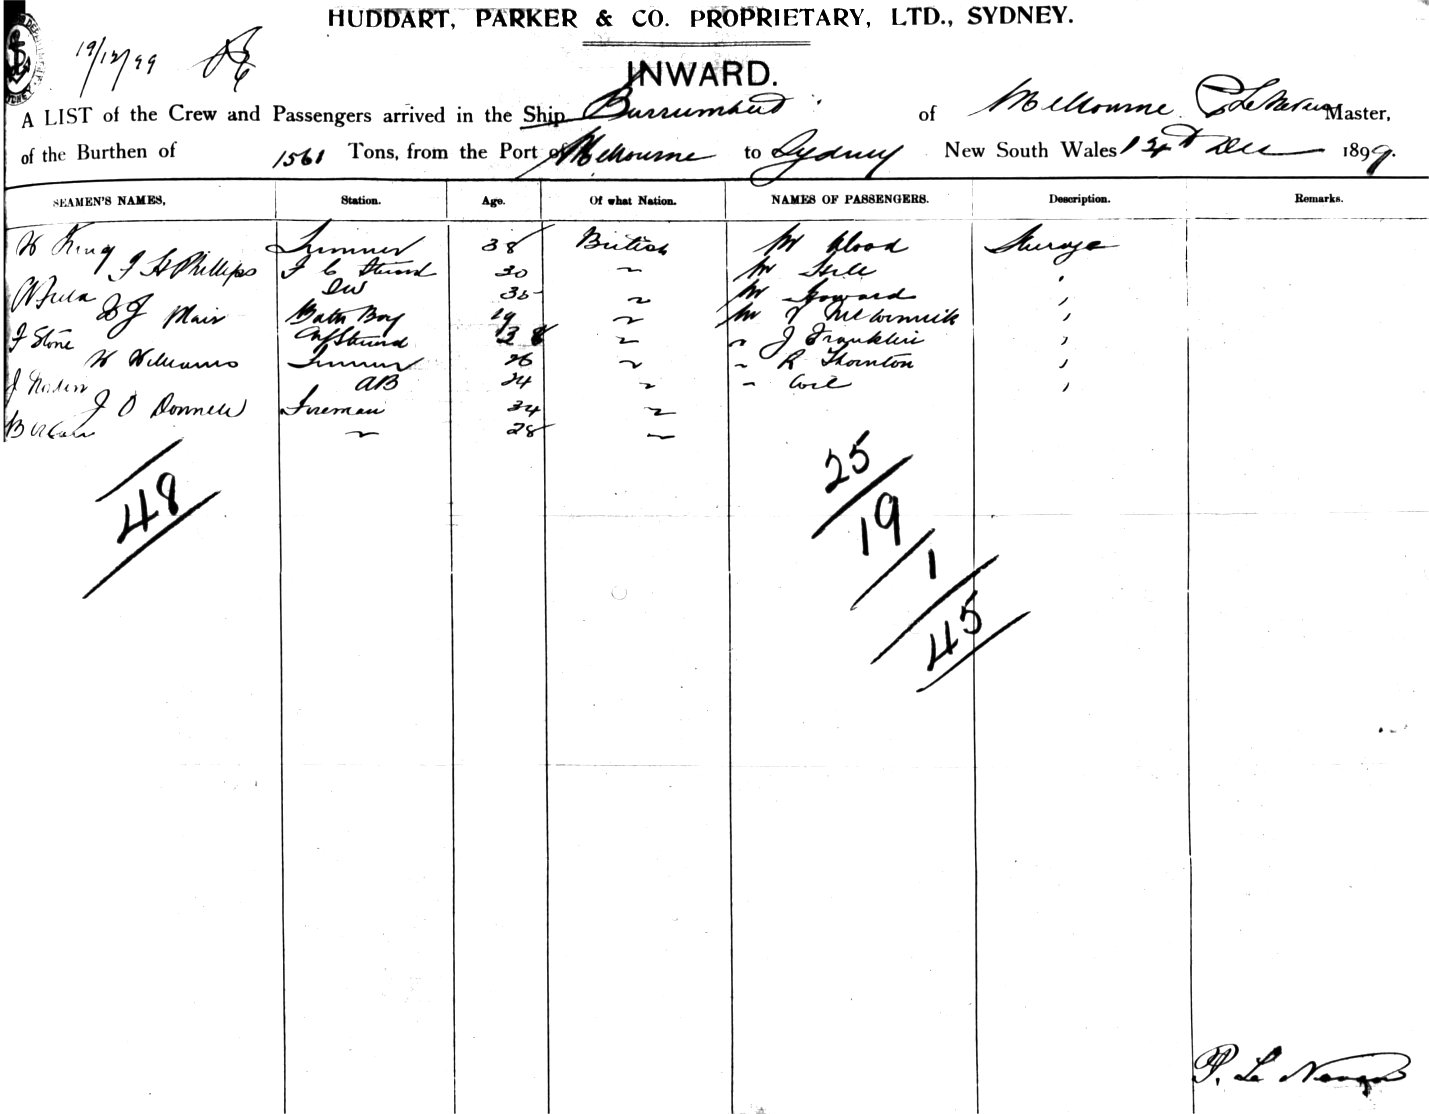 HUDDART, PARKER & CO. PROPRIETARY, LTD., SYDNEY.
19/12/99
INWARD.
A LIST of the Crew and Passengers arrived in the Ship Burrumbeet of Melbourne P Le Neveu Master,
of the Burthen of 1561 Tons, from the Port of Melbourne to Sydney New South Wales Dec 1899.
SEAMEN'S NAMES, Station. Age. Of what Nation. NAMES OF PASSENGERS. Description. Remarks.
W King Trimmer 38 British Mr Wood Steerage
F H Phillips F C Steward 30 " Mr Hill "
DW 35 " Mr Howard "
J Mair Bath Boy 19 " Mr McCormick "
F Stone Steward " " J Franklin "
W Williams Trimmer 26 " " R Thornton "
J AB 24 " " "
J O Donnell Fireman 34 "
" 28 "
48
25
19
1
45
P. Le Neveu